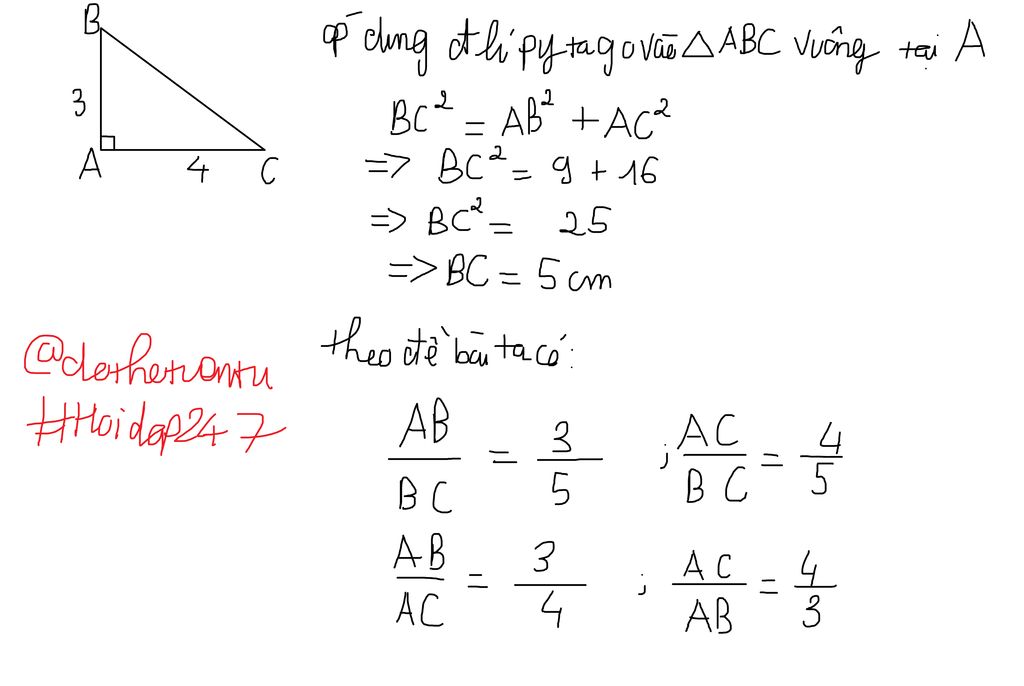 B
3
A 4 C
áp dụng đ lí pytago vào △ABC vuông tại A
BC² = AB² + AC²
=> BC² = 9 + 16
=> BC² = 25
=> BC = 5 cm
@dethetuontu
#Hoidap247
theo đề bài ta có:
AB/BC = 3/5 ; AC/BC = 4/5
AB/AC = 3/4 ; AC/AB = 4/3